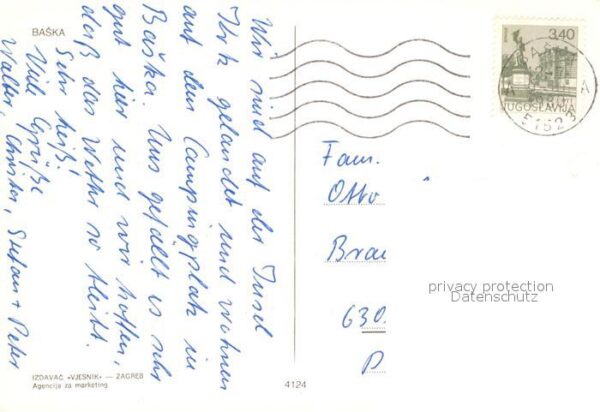 BAŠKA
Wir sind auf der Insel
Krk gelandet und wohnen
auf dem Campingplatz in
Baška. Uns gefällt es sehr
gut hier und wir hoffen,
daß das Wetter so bleibt.
Sehr heiß!
Viele Grüße
Walter, Christa, Stefan + Peter
3,40
JUGOSLAVIJA
51523
Fam.
Otto
Brau
630
D
privacy protection
Datenschutz
IZDAVAČ «VJESNIK» — ZAGREB
Agencija za marketing
4124